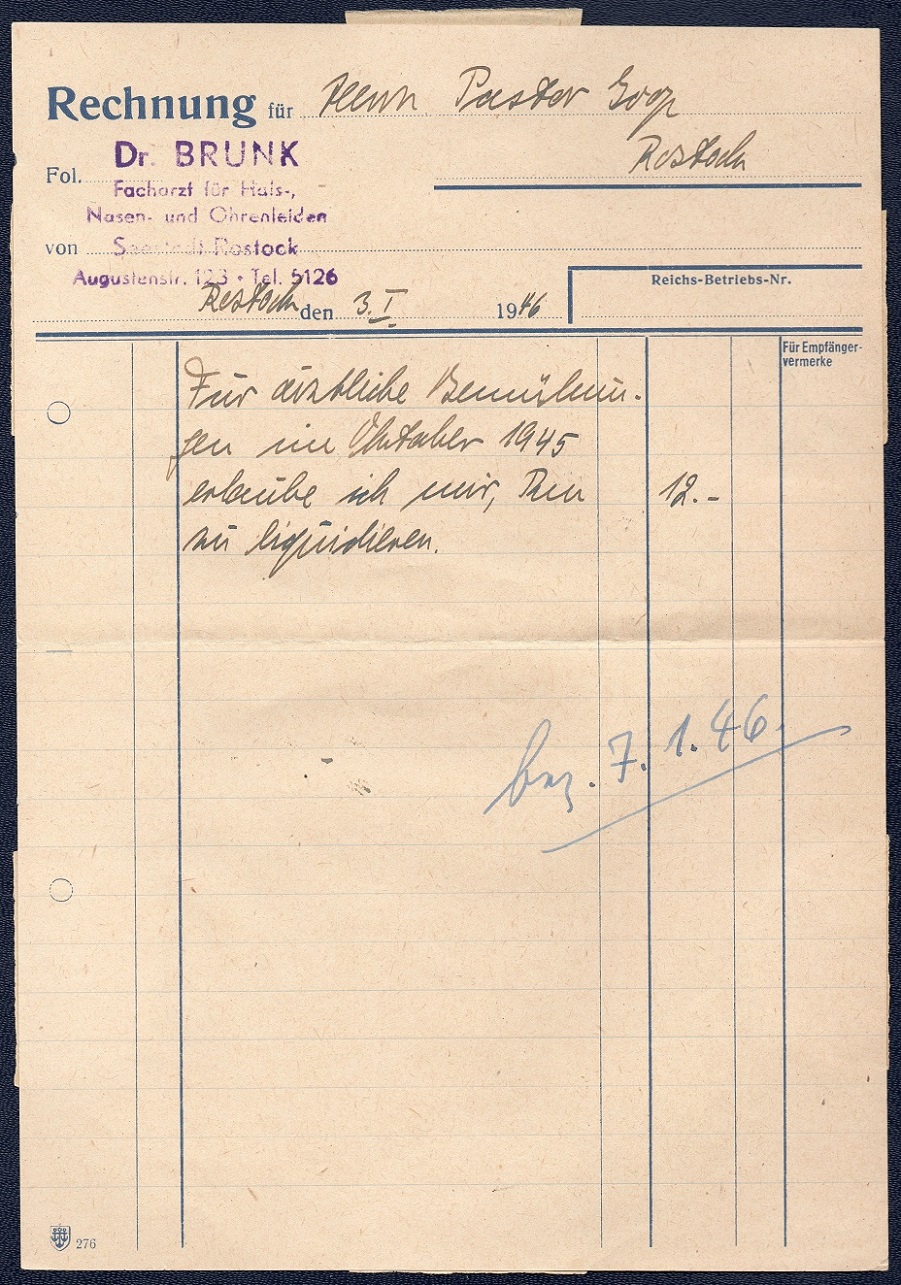 Rechnung für Herrn Pastor
Rostock
Fol.
Dr. BRUNK
Facharzt für Hals-,
Nasen- und Ohrenleiden
von Seestadt Rostock
Augustenstr. 123 • Tel. 5126
Rostock den 3. I. 1946
Reichs-Betriebs-Nr.
Für Empfänger-
vermerke
Für ärztliche Bemühun-
gen im Oktober 1945
erlaube ich mir, 12.-
zu liquidieren.
bez. 7.1.46.
276